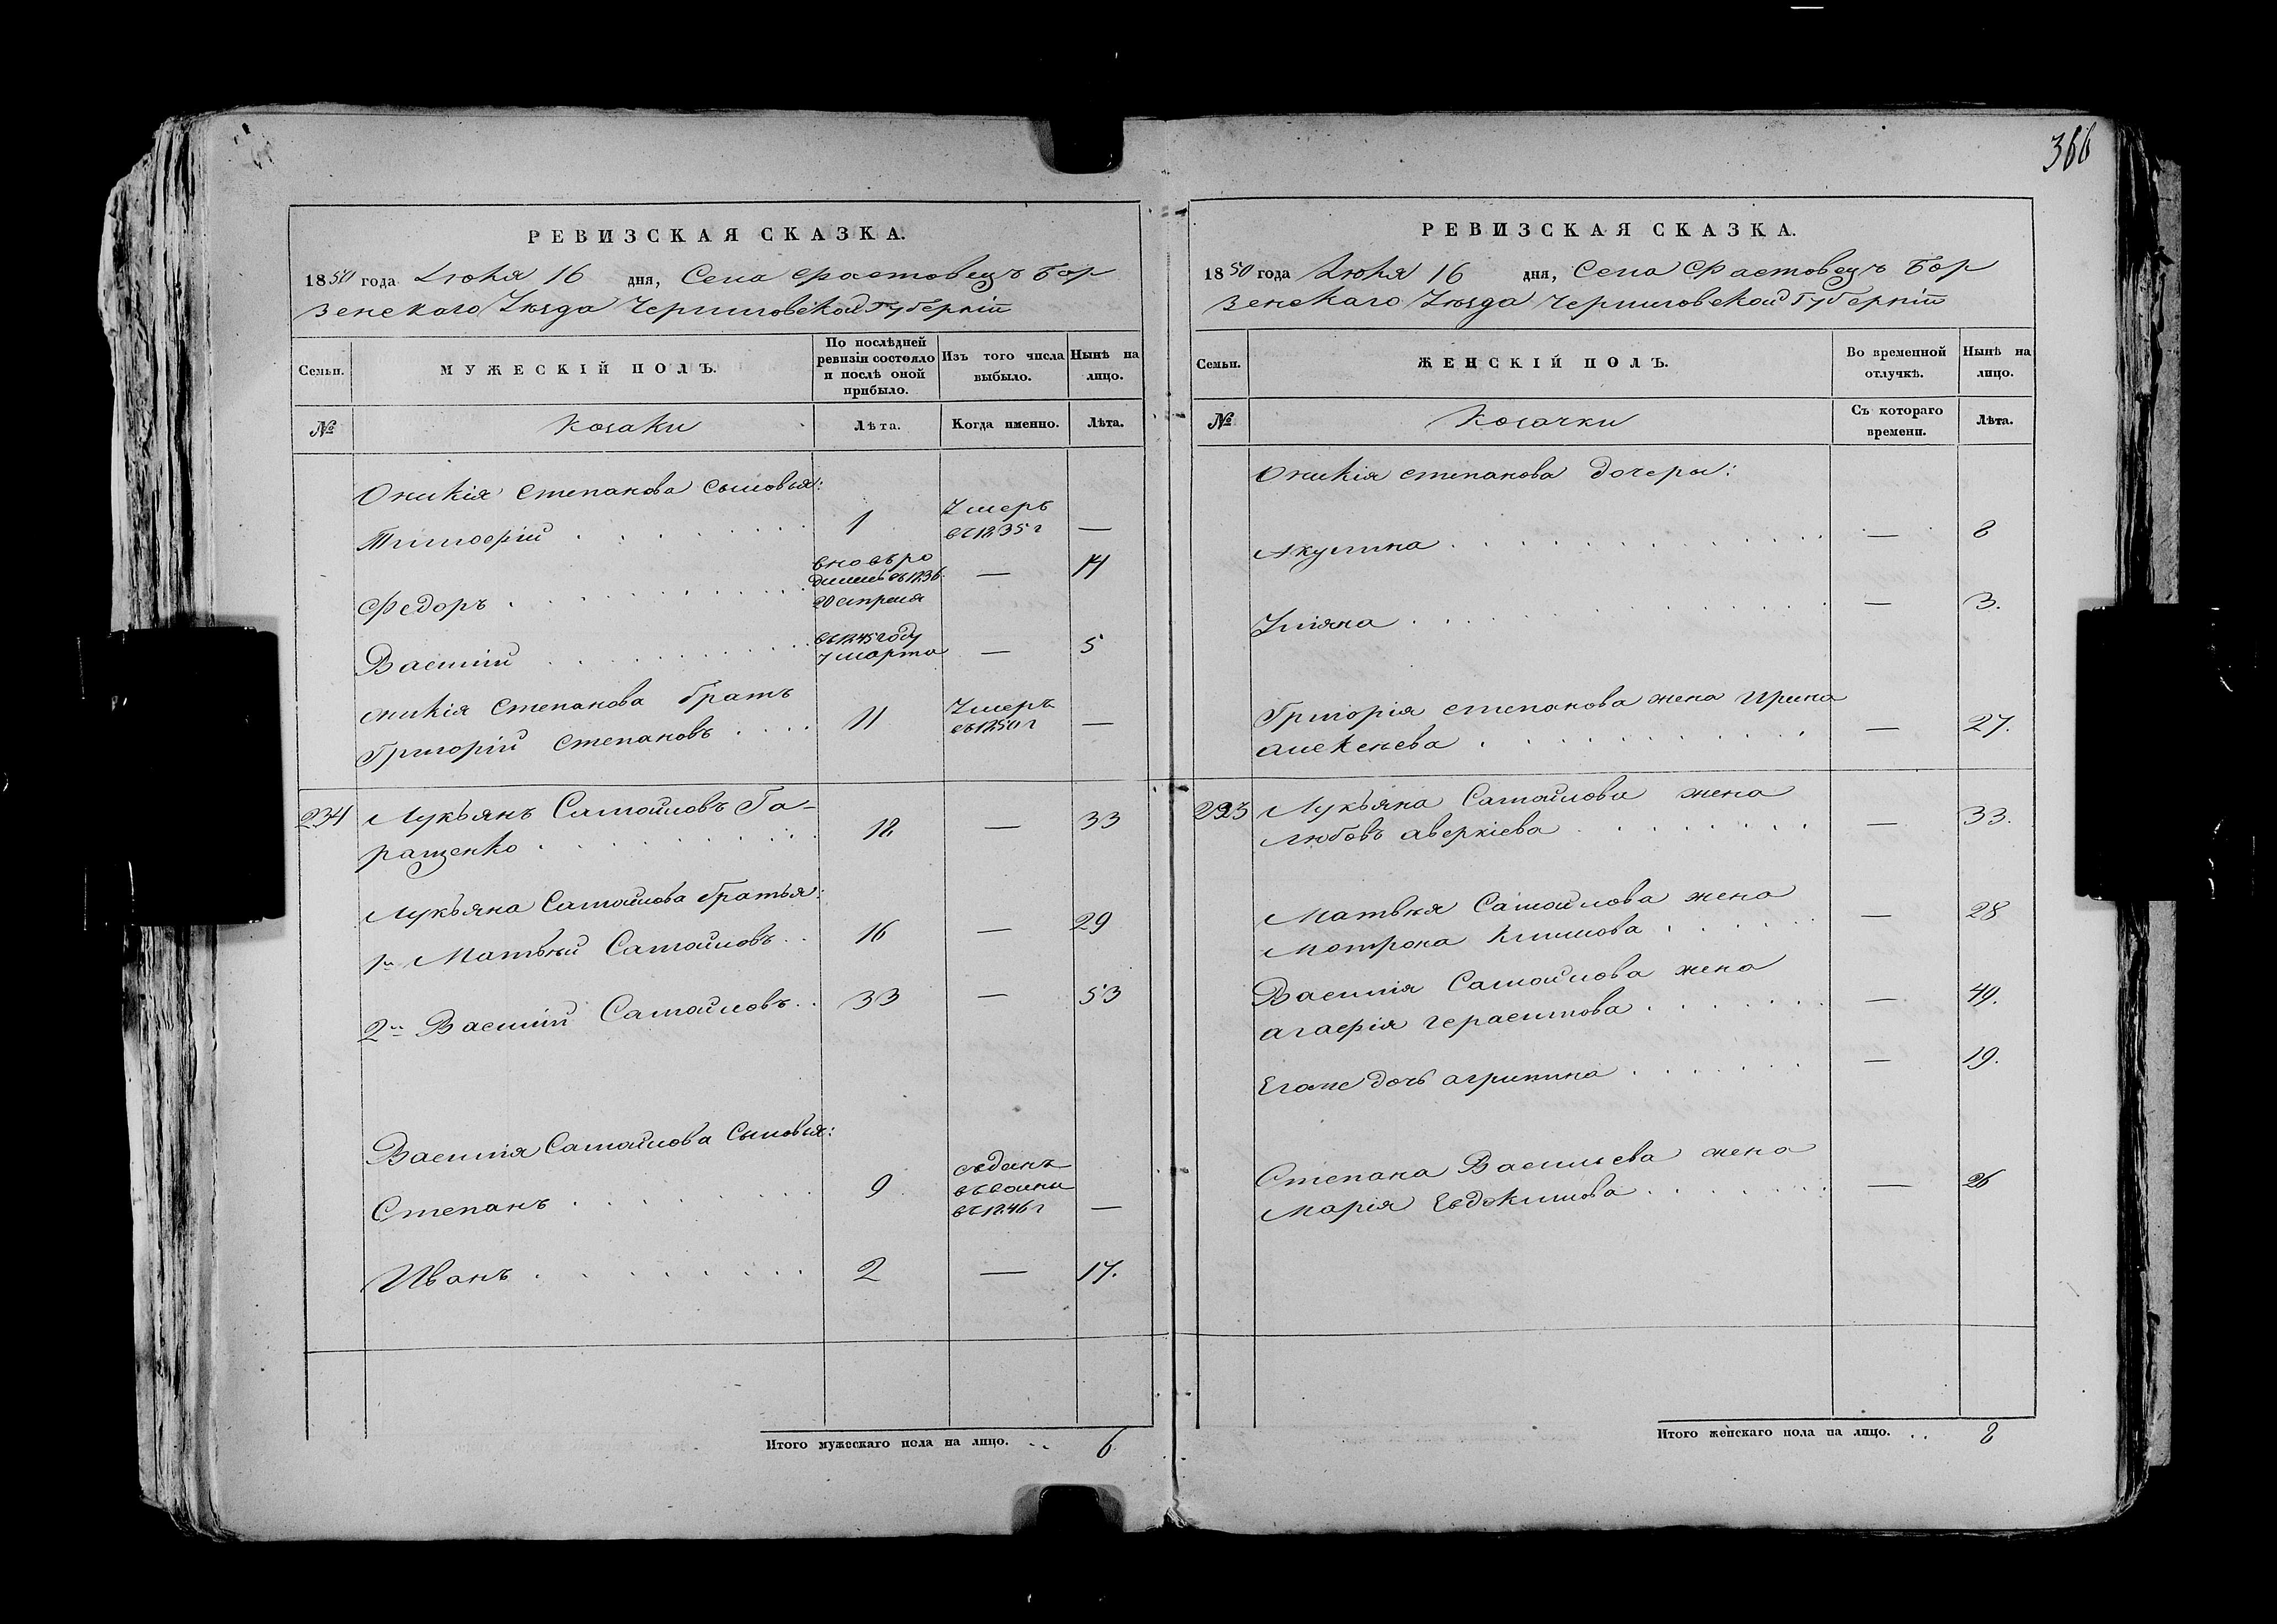 366
РЕВИЗСКАЯ СКАЗКА.
1850 года Іюня 16 дня, Села Фастовецъ Бор
зенскаго Уѣзда Черниговской Губерніи
Семьи.
МУЖЕСКІЙ ПОЛЪ.
По послѣдней
ревизіи состояло
и послѣ оной
прибыло.
Изъ того числа
выбыло.
Нынѣ на
лицо.
№
Козаки
Лѣта.
Когда именно.
Лѣта.
Оникія Степанова сыновья:
Тимофій 1 Умеръ
въ 1835 г —
Федоръ вновь ро
дился въ 1836
20 апреля — 14
Василій въ 1845 году
7 марта — 5
Оникія Степанова братъ
Григорій Степановъ 11 Умеръ
въ 1850 г —
234 Лукъянъ Самойловъ Га-
ращенко 18 — 33
Лукъяна Самойлова братья:
1й Матвѣй Самойловъ 16 — 29
2й Василій Самойловъ 33 — 53
Василія Самойлова Сыновья:
Степанъ 9 отданъ
въ 1846 г —
Иванъ 2 — 17.
Итого мужескаго пола на лицо. 6
РЕВИЗСКАЯ СКАЗКА.
1850 года Іюня 16 дня, Села Фастовецъ Бор
зенскаго Уѣзда Черниговской Губерніи
Семьи.
ЖЕНСКІЙ ПОЛЪ.
Во временной
отлучкѣ.
Нынѣ на
лицо.
№
Козачки
Съ котораго
времени.
Лѣта.
Оникія Степанова дочеры:
Акулина — 8
Уліяна — 3.
Григорія Степанова жена Ирина
Алексеева — 27.
Лукъяна Самойлова жена
Любовъ Аверкіева — 33.
Матвѣя Самойлова жена
Мотрона Климова — 28
Василія Самойлова жена
Агафія Герасимова — 49.
Егоже дочь Агрипина — 19.
Степана Васильева жена
Марія Евдокимова — 26
Итого женскаго пола на лицо. 8